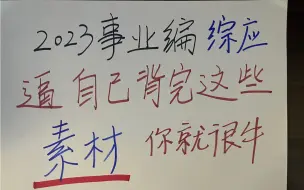 2023事业编综应
逼自己背完这些
素材 你就很牛